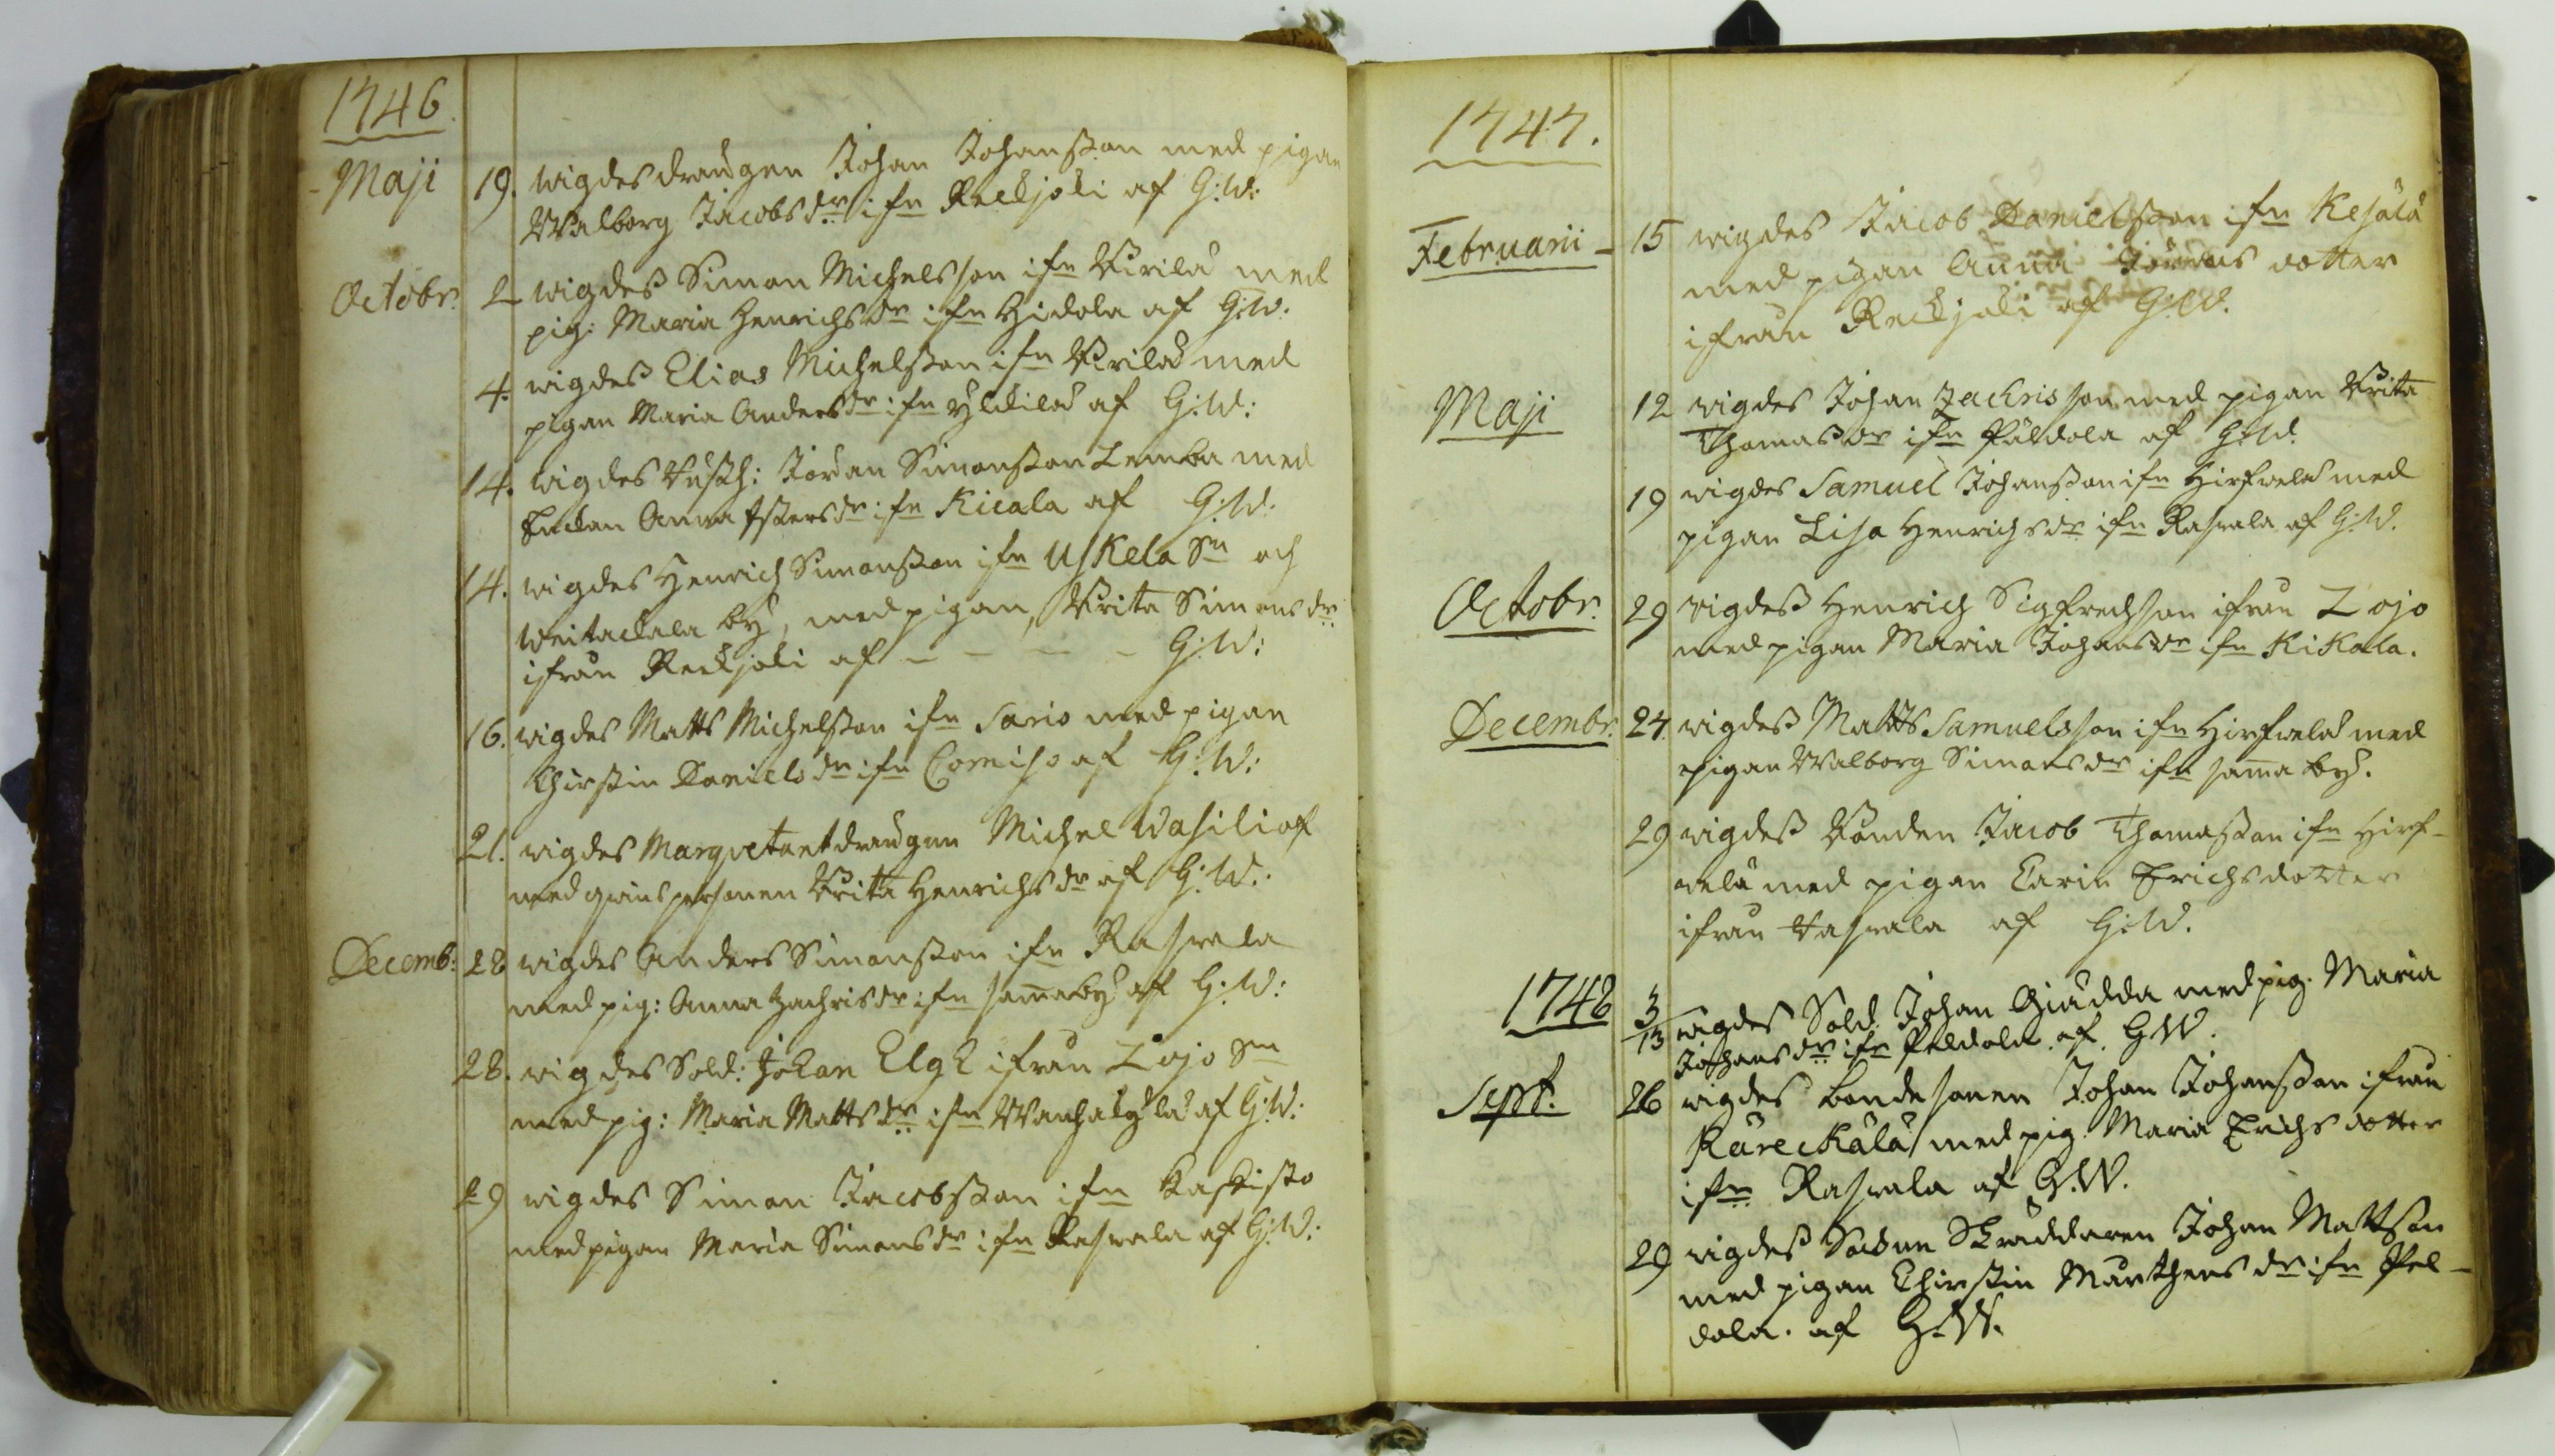 1746.
Maji 19. wigdes drängen Johan Johansson med pigan
Walborg Jacobsdr ifn Reckjoki af G:W:
Octobr. 2 wigdess Simon Michelsson ifn med
pig: Maria Henrichsdr ifn Hidola af G:W:
4. wigdess Elias Michelsson ifn med
pigan Maria Andersdr ifn af G:W:
14. wigdes Jöran Simonsson Lemba med
Enckan Anna ifn Kicala af G:W:
14. wigdes Henrich Simonsson ifn Uskela Sn och
by, med pigan, Brita Simonsdr
ifrån Reckjoki af - - - - G:W:
16. wigdes Matts Michelsson ifn Sario med pigan
Chirstin Danielsdr ifn Comiso af G:W:
21. wigdes Marquetant drängen Michel Wasiliof
med qwins personen Brita Henrichsdr af G:W:
Decemb: 28 wigdes Anders Simonsson ifn Raswala
med pig: Anna Zachrisdr ifn samma by af G:W:
28. wigdes Sold: Johan Elg ifrån Lojo Sn
med pig: Maria Mattsdr ifn af G:W:
29 wigdes Simon Jacobsson ifn Kaskisto
med pigan Maria Simonsdr ifn Raswala af G:W:
1747.
Februarii - 15 wigdes Jacob Danielsson ifn
med pigan Anna Jörans dotter
ifrån Reckjoki af G:W.
Maji 12 wigdes Johan Zachrisson med pigan Brita
Thomasdr ifn Päldola af G:W.
19 wigdes Samuel Johansson ifn Hirfwelä med
pigan Lisa Henrichsdr ifn Raswala af G:W.
Octobr. 29 wigdess Henrich Sigfredsson ifrån Lojo
med pigan Maria Johansdr ifn Kikala.
Decembr. 24 wigdess Matts Samuelsson ifn Hirfwelä med
pigan Walborg Simonsdr ifn samma by.
29 wigdess Bonden Jacob Thomasson ifn Hirf-
welä med pigan Carin Erichsdotter
ifrån Vaswala af G:W.
1748 3/13 wigdes Sold. Johan med pig. Maria
Johansdr ifn Peldola af G.W.
Sept. 26 wigdes bondesonen Johan Johansson ifrån
Käreckälä med pig. Maria Erichsdotter
ifn Raswala af G.W.
29 wigdess Sockne Skräddaren Johan Mattsson
med pigan Chirstin Mårthensdr ifn Pel-
dola. af G.W.